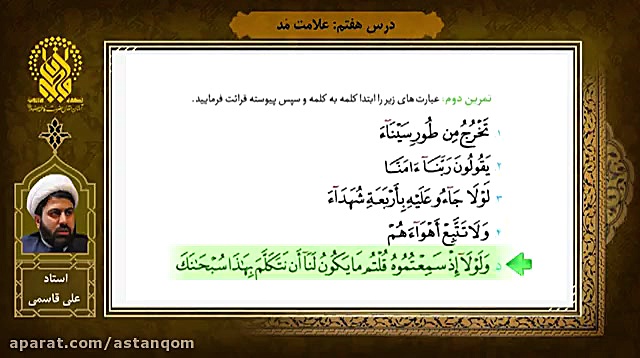 درس هفتم: علامت مَد
تمرین دوم: عبارت های زیر را ابتدا کلمه به کلمه و سپس پیوسته قرائت فرمایید.
۱ تَخْرُجُ مِن طُورِ سَيْنَآءَ
۲ يَقُولُونَ رَبَّنَآ ءَامَنَّا
۳ لَوْلَا جَآءُو عَلَيْهِ بِأَرْبَعَةِ شُهَدَآءَ
۴ وَلَا تَتَّبِعْ أَهْوَآءَهُمْ
۵ وَلَوْلَآ إِذْ سَمِعْتُمُوهُ قُلْتُم مَا يَكُونُ لَنَآ أَن نَتَكَلَّمَ بِهَٰذَا سُبْحَٰنَكَ
استاد
علی قاسمی
aparat.com/astanqom